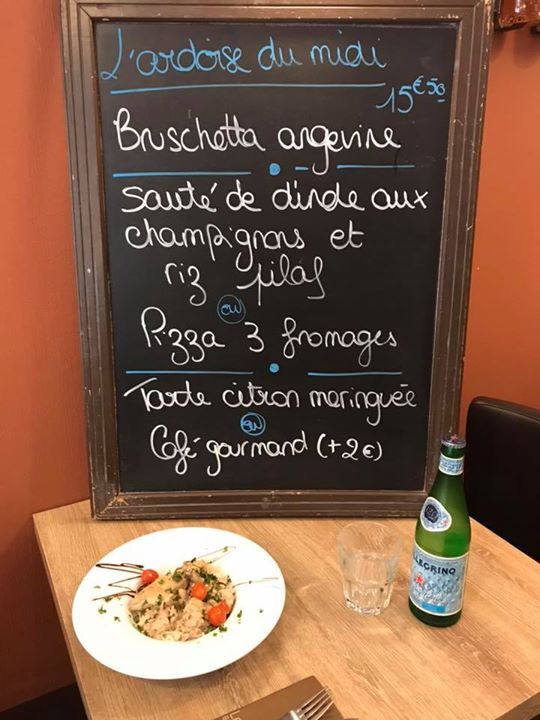 L'ardoise du midi
15€50
Bruschetta angevine
Sauté de dinde aux
champignons et
riz pilaf
ou
Pizza 3 fromages
Tarte citron meringuée
ou
Café gourmand (+2€)
PELLEGRINO